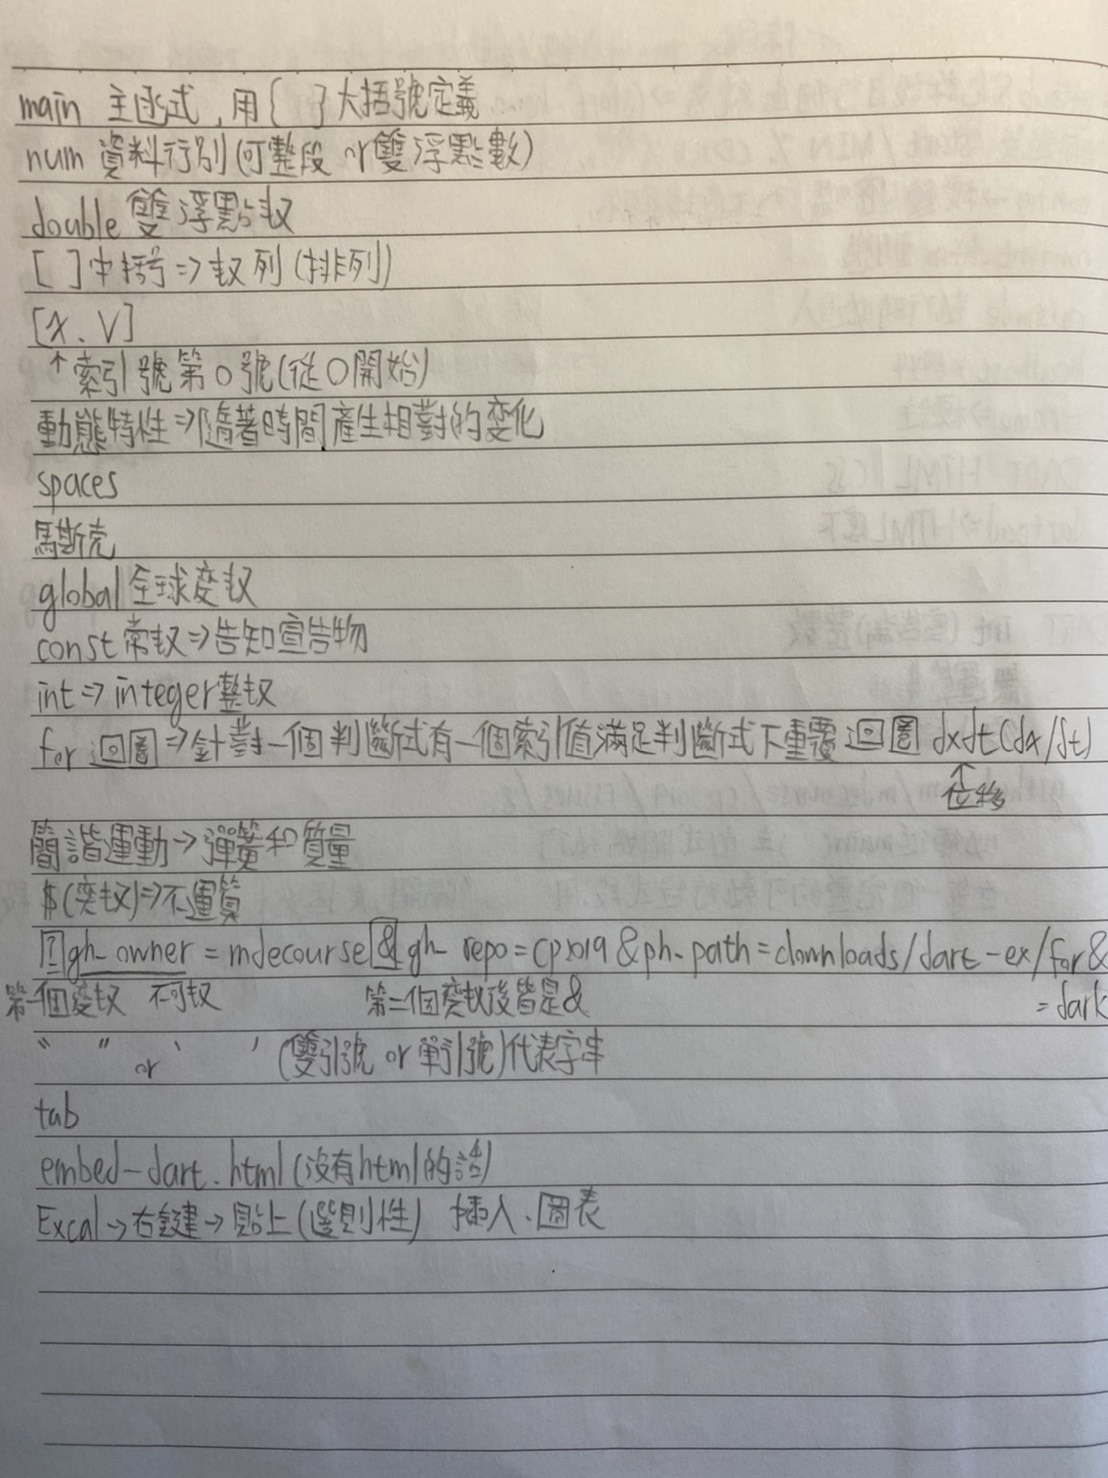 main 主函式,用{ }大括號定義
num 資料行別(可整段 or 雙浮點數)
double 雙浮點数
[ ]中括号⇒数列(排列)
[x、V]
↑索引號第0號(從0開始)
動態特性⇒隨著時間產生相對的变化
spaces
馬斯克
global 全球変数
const 常数⇒告知宣告物
int⇒integer整数
for 迴圈⇒針對一個判斷式有一個索引值滿足判斷式下重覆迴圈 dxdt(dx/dt)
↑
位移
簡諧運動→彈簧和質量
$(変数)⇒不運算
?gh_owner = mdecourse & gh_repo=cp2019 &ph_path=downloads/dart-ex/for&
第一個変数 不可数 第二個変数後皆是& =dark
〝 〞 or ‵ ′ (雙引號 or 單引號)代表字串
tab
embed-dart.html(沒有html的話)
Excal→右鍵→貼上(選則性) 插入、圖表